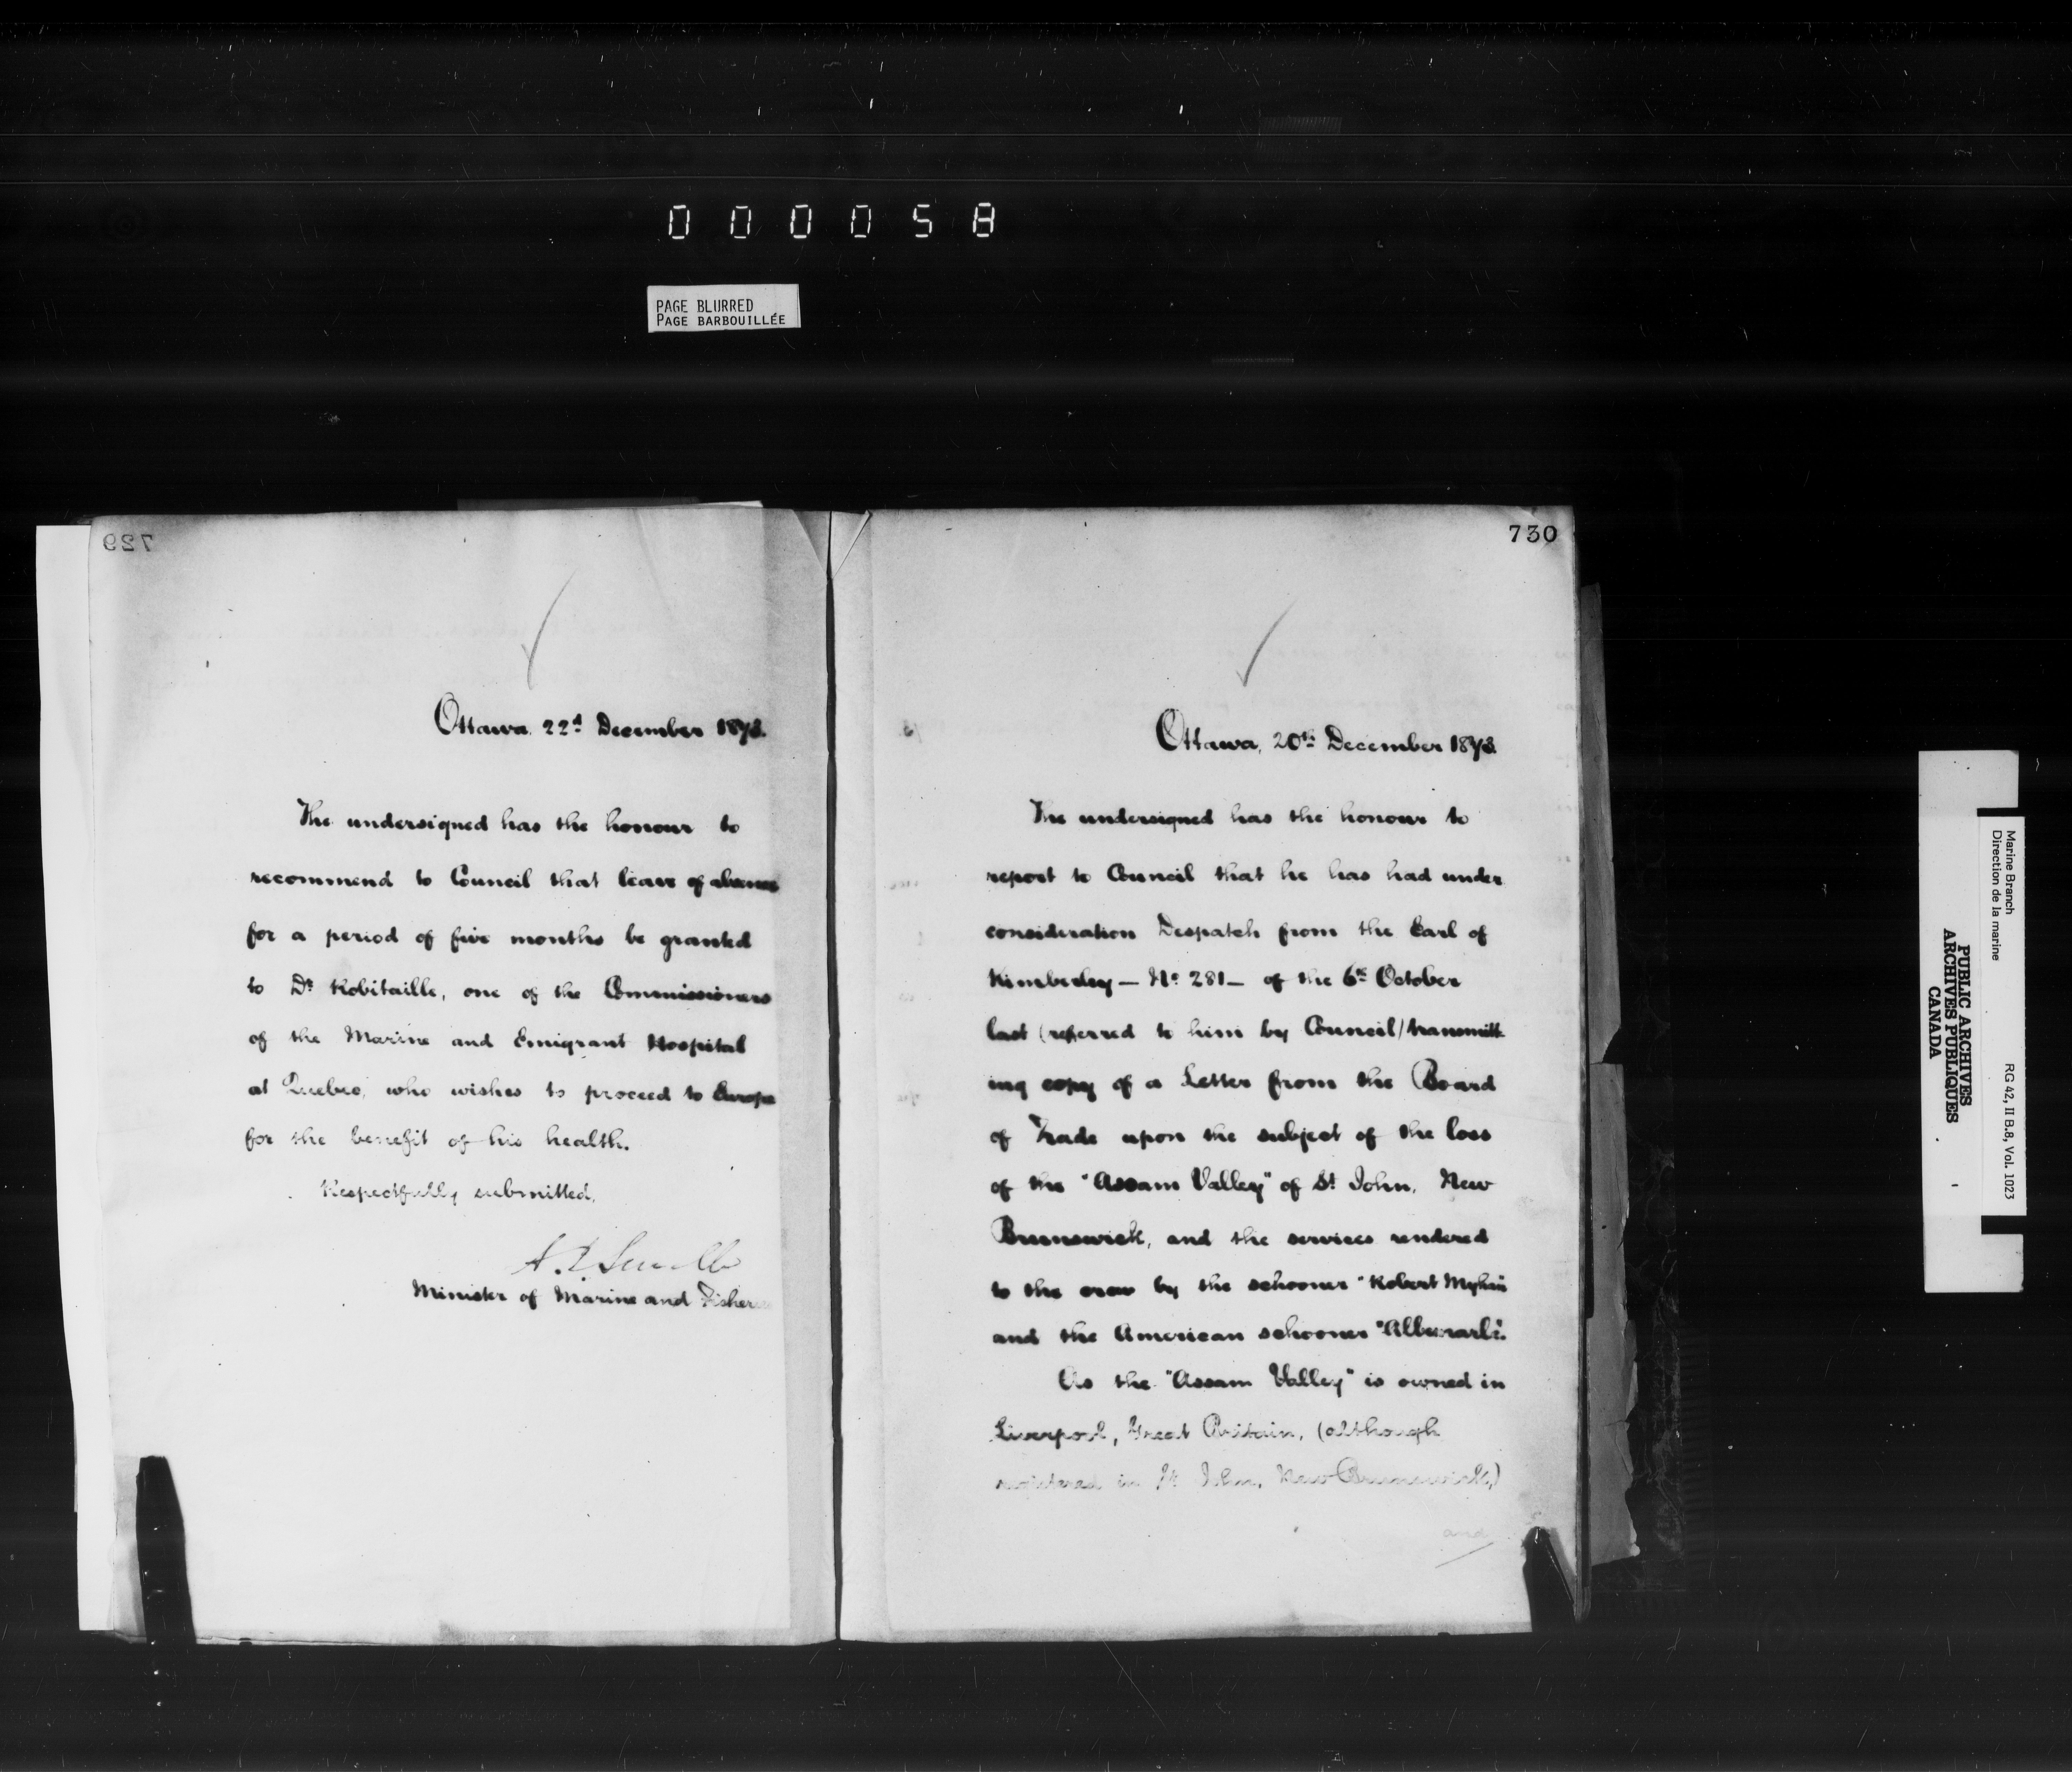 000058
PAGE BLURRED
PAGE BARBOUILLÉE
729
Ottawa. 22d December 1873.
The undersigned has the honour to
recommend to Council that leave of absence
for a period of five months be granted
to Dr Robitaille, one of the Commissioners
of the Marine and Emigrant Hospital
at Quebec, who wishes to proceed to Europe
for the benefit of his health.
Respectfully submitted,
Minister of Marine and Fisheries
730
Ottawa, 20th December 1873.
The undersigned has the honour to
report to Council that he has had under
consideration Despatch from the Earl of
Kimberley — No 281 — of the 6th October
last (referred to him by Council) transmitt-
ing copy of a Letter from the Board
of Trade upon the subject of the loss
of the "Assam Valley" of St John, New
Brunswick, and the services rendered
to the crew by the schooner "Robert
and the American schooner "Albemarle".
As the "Assam Valley" is owned in
Liverpool, Great Britain, (although
registered in St John, New Brunswick,)
and
Marine Branch
Direction de la marine
RG 42, II B.8, Vol. 1023
PUBLIC ARCHIVES
ARCHIVES PUBLIQUES
CANADA